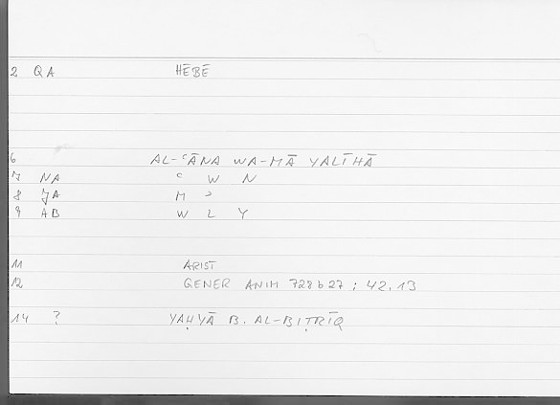 2 QA HĒBĒ
6 AL-ʿĀNA WA-MĀ YALĪHĀ
7 NA ʿ W N
8 JA M ʾ
9 AB W L Y
11 ARIST
12 GENER ANIM 728b27 ; 42.13
14 ? YAḤYĀ B. AL-BIṬRĪQ